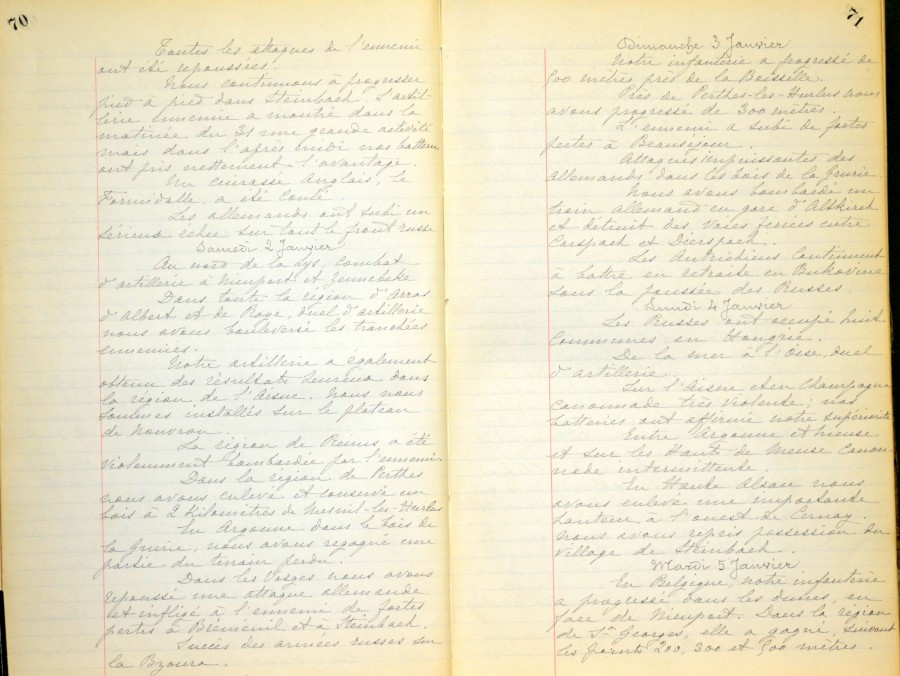 70
Toutes les attaques de l'ennemi
ont été repoussées.
Nous continuons à progresser
pied à pied dans Steinbach. L'artil-
lerie ennemie a montré dans la
matinée du 31 une grande activité
mais dans l'après midi nos batteries
ont pris nettement l'avantage.
Un cuirassé Anglais, le
Formidable a été coulé.
Les allemands ont subi un
sérieux échec sur tout le front russe
Samedi 2 Janvier
Au nord de la Lys, combat
d'artillerie à Nieuport et Zonnebeke
Dans toute la région d'Arras
d'Albert et de Roye, duel d'artillerie
nous avons bouleversé les tranchées
ennemies.
Notre artillerie a également
obtenu des résultats heureux dans
la région de l'Aisne. Nous nous
sommes installés sur le plateau
de Nouvron.
La région de Reims a été
violemment bombardée par l'ennemi.
Dans la région de Perthes
nous avons enlevé et conservé un
bois à 2 kilomètres de Mesnil-les-Hurlus
En Argonne dans le bois de
la Grurie, nous avons regagné une
partie du terrain perdu.
Dans les Vosges nous avons
repoussé une attaque allemande
et infligé à l'ennemi de fortes
pertes à Bréménil et à Steinbach.
Succès des armées russes sur
la Bzoura.
71
Dimanche 3 Janvier
Notre infanterie a progressé de
500 mètres près de la Boisselle.
Près de Perthes-les-Hurlus nous
avons progressé de 300 mètres.
L'ennemi a subi de fortes
pertes à Beausejour.
Attaques impuissantes des
Allemands dans les bois de la Grurie.
Nous avons bombardé un
train allemand en gare d'Altkirch
et détruit des voies ferrées entre
Carspach et Dierspach.
Les Autrichiens continuent
à battre en retraite en Bukovine
sous la poussée des Russes.
Lundi 4 Janvier
Les Russes ont occupé huit
Communes en Hongrie.
De la mer à l'Oise, duel
d'artillerie.
Sur l'Aisne et en Champagne
canonnade très violente; nos
batteries ont affirmé notre supériorité
Entre Argonne et Meuse
et sur les Hauts de Meuse Canon-
nade intermittente.
En Haute Alsace nous
avons enlevé une importante
hauteur à l'ouest de Cernay.
Nous avons repris possession du
village de Steinbach.
Mardi 5 Janvier
En Belgique, notre infanterie
a progressé dans les dunes, en
face de Nieuport. Dans la région
de St Georges, elle a gagné, suivant
les points 200, 300 et 500 mètres.